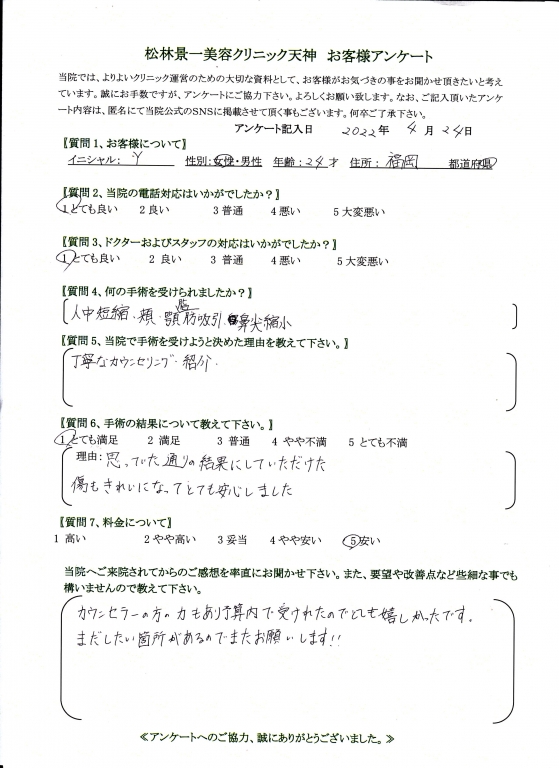 松林景一美容クリニック天神 お客様アンケート
当院では、よりよいクリニック運営のための大切な資料として、お客様がお気づきの事をお聞かせ頂きたいと考え
ています。誠にお手数ですが、アンケートにご協力下さい。よろしくお願い致します。なお、ご記入頂いたアンケ
ート内容は、匿名にて当院公式のSNSに掲載させて頂く事もございます。何卒ご了承下さい。
アンケート記入日 2022年 4月 24日
〖質問1、お客様について〗
イニシャル: Y 性別:女性・男性 年齢:24才 住所: 福岡 都道府県
〖質問2、当院の電話対応はいかがでしたか?〗
1とても良い 2 良い 3 普通 4 悪い 5 大変悪い
〖質問3、ドクターおよびスタッフの対応はいかがでしたか?〗
1とても良い 2 良い 3 普通 4 悪い 5 大変悪い
〖質問4、何の手術を受けられましたか?〗
人中短縮・頬・顎脂肪吸引・鼻尖縮小
〖質問5、当院で手術を受けようと決めた理由を教えて下さい。〗
丁寧なカウンセリング・紹介・
〖質問6、手術の結果について教えて下さい。〗
1とても満足 2 満足 3 普通 4 やや不満 5 とても不満
理由:思っていた通りの結果にしていただけた
傷もきれいになってとても安心しました
〖質問7、料金について〗
1 高い 2 やや高い 3 妥当 4 やや安い 5 安い
当院へご来院されてからのご感想を率直にお聞かせ下さい。また、要望や改善点など些細な事でも
構いませんので教えて下さい。
カウンセラーの方の力もあり予算内で受けれたのでとても嬉しかったです。
まだしたい箇所があるのでまたお願いします!!
≪アンケートへのご協力、誠にありがとうございました。≫